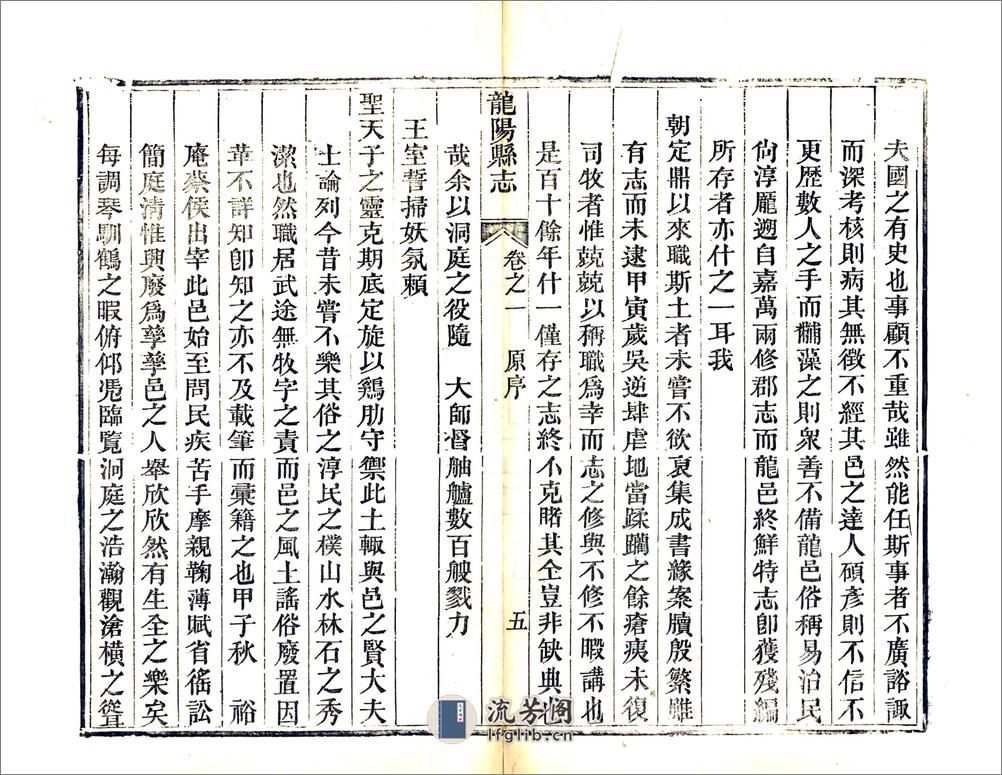 夫國之有史也事顧不重哉雖然能任斯事者不廣諮諏
而深考核則病其無徵不經其邑之達人碩彥則不信不
更歷數人之手而黼藻之則衆善不備龍邑俗稱易治民
尙淳龐遡自嘉萬兩修郡志而龍邑終鮮特志卽獲殘編
所存者亦什之一耳我
朝定鼎以來職斯土者未嘗不欲裒集成書緣案牘殷繁雖
有志而未逮甲寅歲吳逆肆虐地當蹂躪之餘瘡痍未復
司牧者惟兢兢以稱職爲幸而志之修與不修不暇講也
是百十餘年什一僅存之志終不克睹其全豈非缺典也
龍陽縣志 卷之一 原序 五
哉余以洞庭之役隨 大師督舳艫數百艘戮力
王室誓掃妖氛賴
聖天子之靈克期底定旋以鷄肋守禦此土輙與邑之賢大夫
士論列今昔未嘗不樂其俗之淳民之樸山水林石之秀
潔也然職居武途無牧字之責而邑之風土謠俗廢置因
革不詳知卽知之亦不及載筆而彙籍之也甲子秋 裕
庵蔡侯出宰此邑始至問民疾苦手摩親鞠薄賦省徭訟
簡庭清惟興廢爲孳孳邑之人舉欣欣然有生全之樂矣
每調琴馴鶴之暇俯仰凴臨覽洞庭之浩瀚觀滄橫之聳
流芳阁
lfglib.cn